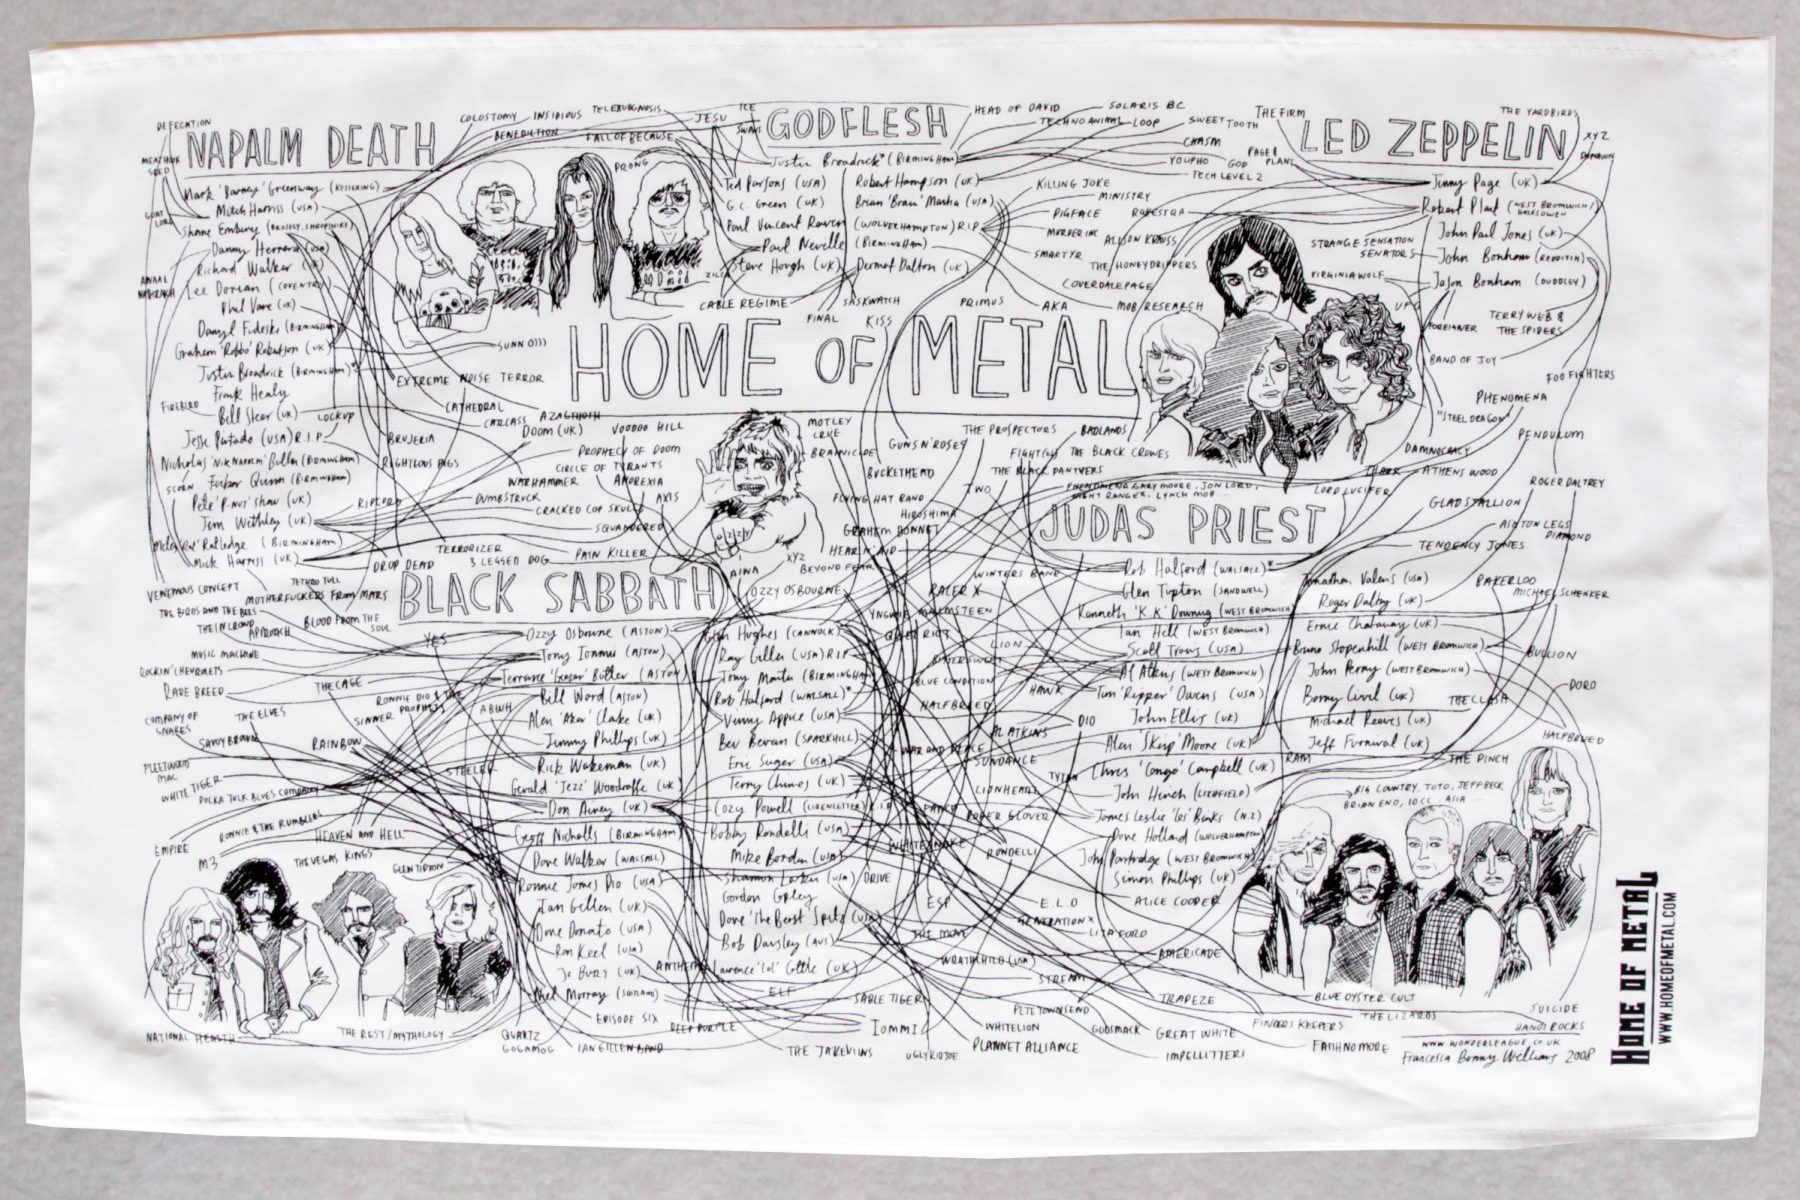 DEFECATION
NAPALM DEATH
COLOSTOMY
INSIDIOUS
BENEDICTION
FALL OF BECAUSE
JESU
ICE
SWANS
GODFLESH
HEAD OF DAVID
TECHNO ANIMAL
LOOP
SOLARIS BC
SWEET TOOTH
CHASM
YOUPHO
GOD
TECH LEVEL 2
THE FIRM
PAGE & PLANT
LED ZEPPELIN
THE YARDBIRDS
XYZ
MEATHOOK SEED
GOAT LORD
ANAAL NATHRAKH
Mark 'Barney' Greenway (KETTERING)
Mitch Harriss (USA)
Shane Embury (BROSELY, SHROPSHIRE)
Danny Herrera (USA)
Richard Walker (UK)
Lee Dorian (COVENTRY)
Phil Vane (UK)
Daryl Fideski (BIRMINGHAM)
Graham 'Robbo' Robertson (UK)
Justin Broadrick (BIRMINGHAM)*
Frank Healy
FIREBIRD
Bill Steer (UK)
LOCKUP
Jesse Pintado (USA) R.I.P
Nicholas 'NIK NAPALM' Bullen (BIRMINGHAM)
SCORN
Finbar Quinn (BIRMINGHAM)
Pete 'P-Nut' Shaw (UK)
Jim Withley (UK)
Miles 'Rat' Ratledge (BIRMINGHAM)
Mick Harriss (UK)
PRONG
Justin Broadrick* (BIRMINGHAM)
Ted Parsons (USA)
Robert Hampson (UK)
G.C. Green (UK)
Brian 'Brau' Mantia (USA)
Paul Vincent Raven (WOLVERHAMPTON) R.I.P
Paul Neville (BIRMINGHAM)
Steve Hough (UK)
Dermot Dalton (UK)
CABLE REGIME
FINAL
SASKWATCH
KISS
PRIMUS
AKA
MOB RESEARCH
KILLING JOKE
MINISTRY
PIGFACE
MURDER INC
SMARTYR
ALISON KRAUSS
THE HONEYDRIPPERS
COVERDALE PAGE
Jimmy Page (UK)
Robert Plant (WEST BROMWICH / HALESOWEN
John Paul Jones (UK)
John Bonham (REDDITCH)
Jason Bonham (DUDDLEY)
STRANGE SENSATION
SENATORS
VIRGINIA WOLF
UFO
FOREIGNER
TERRY WEB & THE SPIDERS
BAND OF JOY
FOO FIGHTERS
PHENOMENA
"STEEL DRAGON"
PENDULUM
DAMNOCRACY
ATHENS WOOD
LORD LUCIFER
ROGER DALTREY
GLAD STALLION
TENDENCY JONES
BAKERLOO
MICHAEL SCHENKER
SUNN O)))
EXTREME NOISE TERROR
HOME OF METAL
CATHEDRAL
CARCASS
AZAGTHOTH
DOOM (UK)
VOODOO HILL
BRUJERIA
RIGHTEOUS PIGS
PROPHECY OF DOOM
CIRCLE OF TYRANTS
WARHAMMER
ANOREXIA
DUMBSTRUCK
AXIS
CRACKED COP SKULLS
SQUANDERED
RIPCORD
TERRORIZER
3 LEGGED DOG
PAIN KILLER
DROP DEAD
MOTLEY CRUE
BRAINICIDE
GUNS N'ROSES
BUCKETHEAD
FLYING HAT BAND
HIROSHIMA
GRAHAM BONNET
HEAR N' AID
XYZ
BEYOND FEAR
AINA
THE PROSPECTORS
BADLANDS
FIGHT (US)
THE BLACK CROWES
THE BLACK PANTHERS
TWO
PHENOMENA, GARY MOORE, JON LORD,
NIGHT RANGER, LYNCH MOB ...
JUDAS PRIEST
BLACK SABBATH
OZZY OSBOURNE
VENEMOUS CONCEPT
JETHRO TULL
MOTHERFUCKERS FROM MARS
THE BIRDS AND THE BEES
THE IN CROWD
APPROACH
BLOOD FROM THE SOUL
YES
MUSIC MACHINE
ROCKIN' CHEVROLETS
RARE BREED
THE CAGE
COMPANY OF SNAKES
THE ELVES
RONNIE DIO & THE PROPHETS
SINNER
ABWH
SAVOY BROWN
RAINBOW
FLEETWOOD MAC
WHITE TIGER
POLKA TULK BLUES COMPANY
STEELER
RONNIE & THE RUMBLERS
HEAVEN AND HELL
EMPIRE
M3
THE VEGAS KINGS
GLEN TIPTON
Ozzy Osbourne (ASTON)
Tony Iommi (ASTON)
Terrance 'Geezer' Butler (ASTON)
Bill Ward (ASTON)
Alan 'Aker' Clarke (UK)
Jimmy Phillips (UK)
Rick Wakeman (UK)
Gerald 'Jezz' Woodroffe (UK)
Don Airey (UK)
Geoff Nicholls (BIRMINGHAM)
Dave Walker (WALSALL)
Ronnie James Dio (USA)
Ian Gillen (UK)
Dave Donato (USA)
Ron Keel (USA)
Jo Burt (UK)
Neil Murray (SCOTLAND)
Glen Hughes (CANNOCK)
Ray Gillen (USA) R.I.P
Tony Martin (BIRMINGHAM)
Rob Halford (WALSALL)*
Vinny Appice (USA)
Bev Bevan (SPARKHILL)
Eric Singer (USA)
Terry Chimes (UK)
Cozy Powell (CIRENCESTER) R.I.P
Bobby Rondelli (USA)
Mike Bordin (USA)
Gordon Copley
Dave 'The Beast' Spitz (USA)
Bob Daisley (AUS)
Laurence 'Lol' Cottle (UK)
YNGWIE MALMSTEEN
RACER X
WINTERS BANE
QUIET RIOT
LION
BITTERSWEET
BLUE CONDITION
HAWK
HALFBREED
DIO
AL ATKINS
WAR AND PEACE
SUNDANCE
LIONHEART
ROGER GLOVER
WHITESNAKE
RONDELLI
DRIVE
ESP
E.L.O
GENERATION X
LITA FORD
THE MOVE
ALICE COOPER
WRATHCHILD (USA)
AMERICADE
STREAM
TRAPEZE
PETE TOWNSEND
Rob Halford (WALSALL)*
Glen Tipton (SANDWELL)
Kenneth 'K.K' Downing (WEST BROMWICH)
Ian Hill (WEST BROMWICH)
Scott Travis (USA)
Al Atkins (WEST BROMWICH)
Tim 'Ripper' Owens (USA)
John Ellis (UK)
Alan 'Skip' Moore (UK)
Chris 'Congo' Campbell (UK)
John Hinch (LICHFIELD)
James Leslie 'Les' Binks (N.I)
Dave Holland (WOLVERHAMPTON)
John Partridge (WEST BROMWICH)
Simon Phillips (UK)
Jonathan Valens (USA)
Roger Daltry (UK)
Ernie Chataway (UK)
Bruno Stapenhill (WEST BROMWICH)
John Perry (WEST BROMWICH)
Michael Reeves (UK)
Jeff Furnival (UK)
THE CLASH
BULLION
DORO
HALFBREED
RAM
THE PINCH
BIG COUNTRY, TOTO, JEFF BECK
BRIAN ENO, 10CC, ASIA ....
NATIONAL HEALTH
THE REST/MYTHOLOGY
QUARTZ
GOGAMOG
EPISODE SIX
IAN GILLEN BAND
DEEP PURPLE
ANTHEM
ELF
SABLE TIGER
THE JAKEVIUS
IOMMI
UGLY KID JOE
WHITELION
PLANNET ALLIANCE
GODSMACK
GREAT WHITE
IMPELLITTERI
FINDERS KEEPERS
BLUE OYSTER CULT
THE LIZARDS
FAITH NO MORE
SUICIDE
HANOI ROCKS
WWW.WONDERLEAGUE.CO.UK
Francesca Bonny Williams 2008
HOME OF METAL
WWW.HOMEOFMETAL.COM